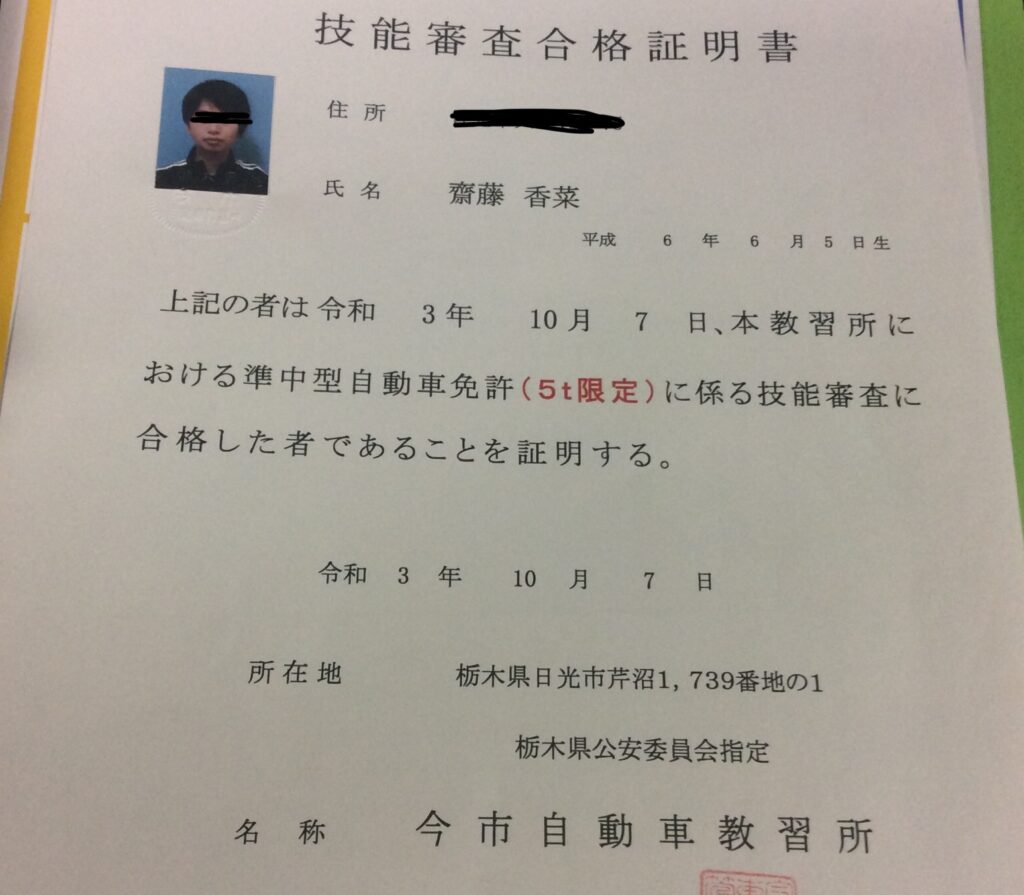 技能審査合格証明書
住所
氏名 齋藤 香菜
平成 6 年 6 月 5 日生
上記の者は令和 3年 10月 7 日、本教習所に
おける準中型自動車免許(5t限定)に係る技能審査に
合格した者であることを証明する。
令和 3 年 10 月 7 日
所在地 栃木県日光市芹沼1,739番地の1
栃木県公安委員会指定
名称 今市自動車教習所